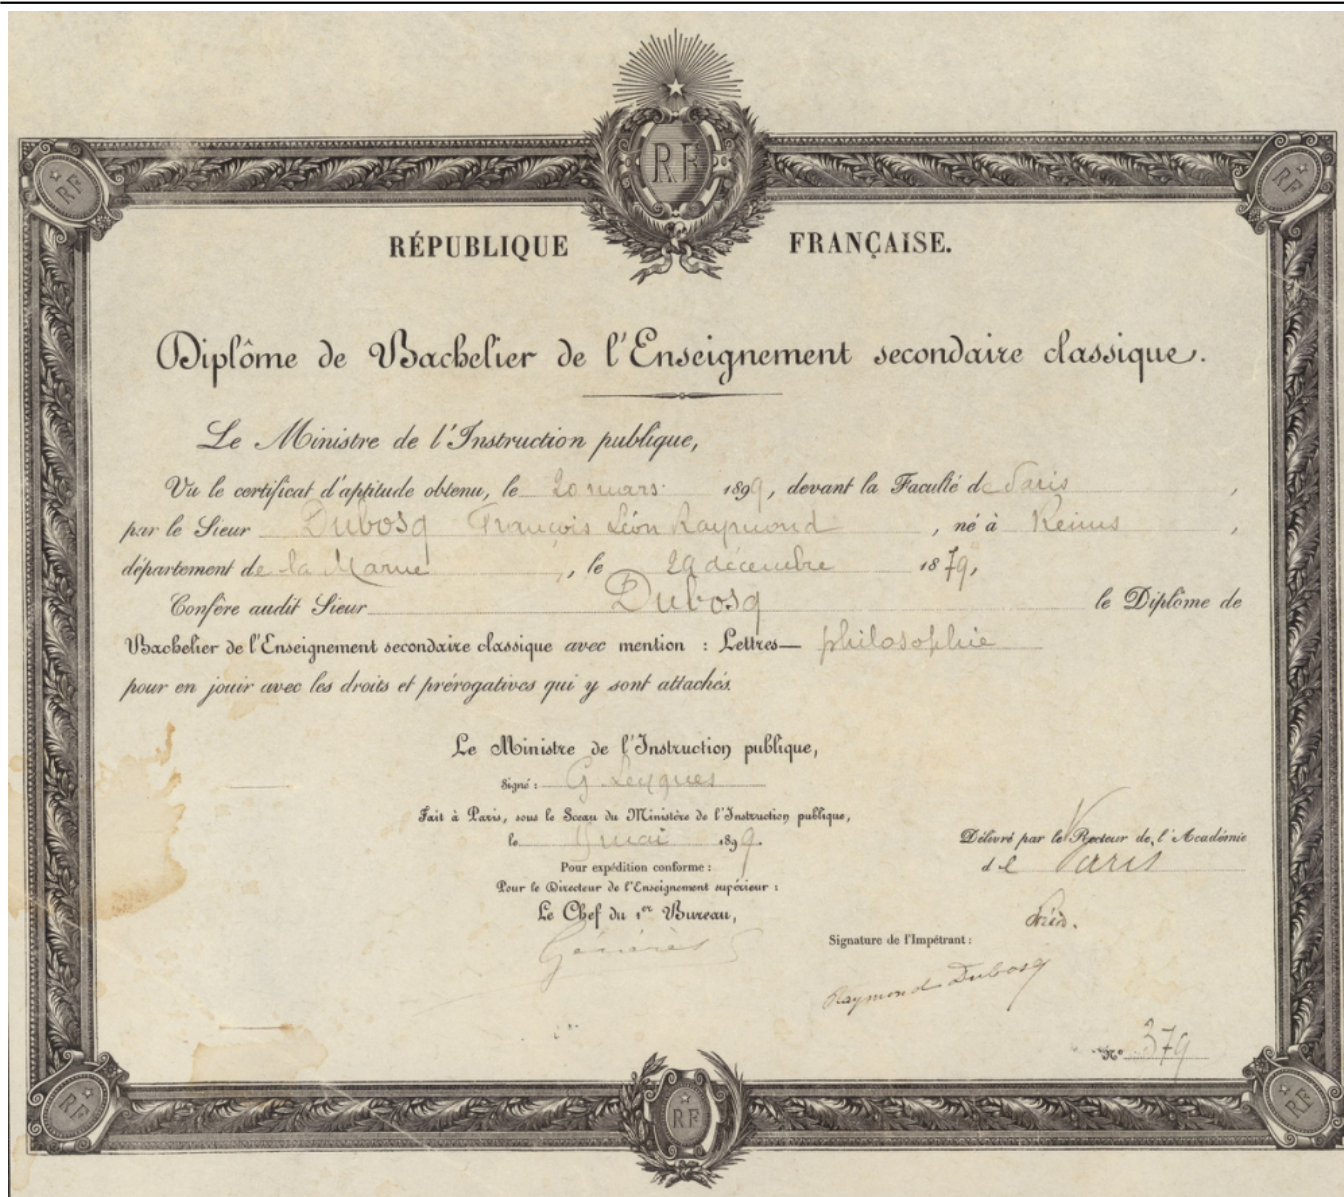 RF
RF
RF
RÉPUBLIQUE FRANÇAISE.
Diplôme de Bachelier de l'Enseignement secondaire classique.
Le Ministre de l'Instruction publique,
Vu le certificat d'aptitude obtenu, le 20 mars 1899, devant la Faculté de Paris,
par le Sieur Dubosq François Léon Raymond, né à Reims,
département de la Marne, le 29 décembre 1879,
Confère audit Sieur Dubosq le Diplôme de
Bachelier de l'Enseignement secondaire classique avec mention : Lettres — philosophie
pour en jouir avec les droits et prérogatives qui y sont attachés.
Le Ministre de l'Instruction publique,
Signé : G Leygues
Fait à Paris, sous le Sceau du Ministère de l'Instruction publique,
le mai 1899.
Pour expédition conforme :
Pour le Directeur de l'Enseignement supérieur :
Le Chef du 1er Bureau,
Délivré par le Recteur de l'Académie
de Paris
Signature de l'Impétrant :
Raymond Dubosq
N° 379
RF
RF
RF